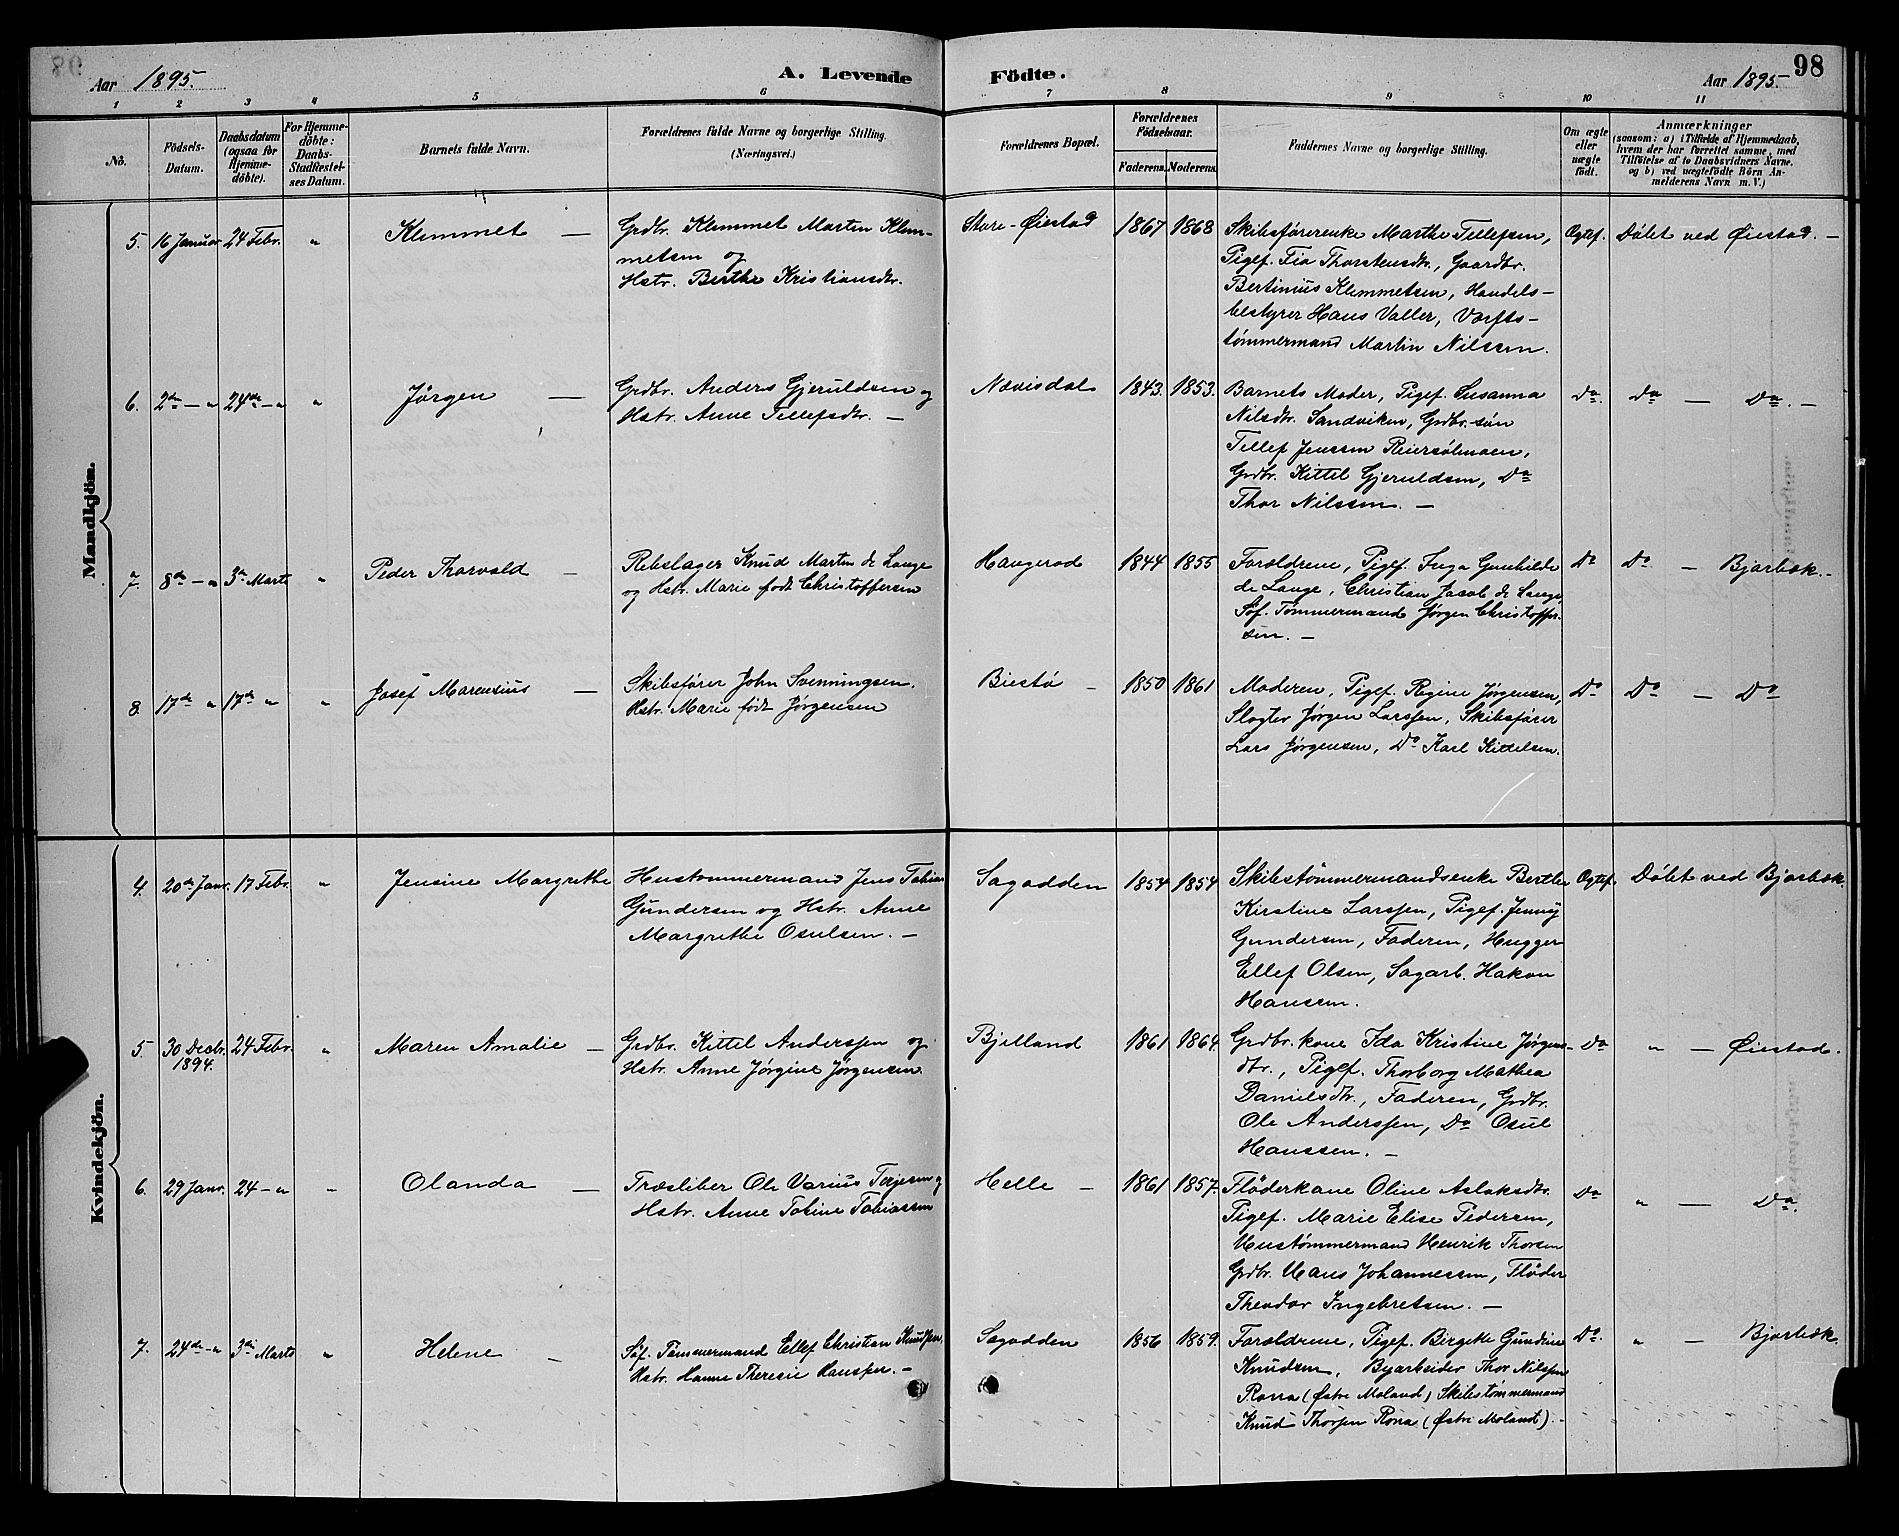 Aar 1895.
A. Levende Födte.
Aar 1895.
98
1 2 3 4 5 6 7 8 9 10 11
No.
Födsels-
Datum.
Daabsdatum
(ogsaa for
Hjemme-
döbte).
For Hjemme-
döbte:
Daabs-
Stadfestel-
ses Datum.
Barnets fulde Navn.
Forældrenes fulde Navne og borgerlige Stilling.
(Næringsvei.)
Forældrenes Bopæl.
Forældrenes
Födselsaar.
Faderens. Moderens.
Faddernes Navne og borgerlige Stilling.
Om ægte
eller
uægte
födt.
Anmærkninger
(saasom: a) i Tilfælde af Hjemmedaab,
hvem der har forrettet samme, med
Tilföielse af to Daabsvidners Navne,
og b) ved uægtefödte Börn An-
melderens Navn m. V.)
Mandkjön.
5. 16 Januar 24 Febr. „ Klemmet — Grdbr. Klemmet Martin Klem-
metsen og
Hstr. Berthe Kristiansdtr.
Store-Øiestad 1867 1868 Skibsførerenke Marthe Tellefsen,
Pigef. Fia Thorstensdtr., Gaardbr.
Bertinius Klemmetsen, Handels-
bestyrer Hans Valler, Værfts-
tømmermand Martin Nilssen.
Ægtef. Døbt ved Øiestad. —
6. 2de — „ 24de — „ „ Jørgen — Grdbr. Anders Gjeruldsen og
Hstr. Anne Tellefsdtr. —
Nævisdal 1843. 1853. Barnets Moder, Pigef. Susanna
Nilsdtr. Sandviken, Grdbr.søn
Tellef Jenssen Reiersølmoen,
Grdbr. Kittel Gjeruldsen, Do
Thor Nilssen. —
Do. Do — Do. —
7. 8de — „ 3de Marts „ Peder Thorvald — Rebslager Knud Martin de Lange
og Hstr. Marie født Christoffersen
Haugerød 1844 1855 Forældrene, Pigef. Inga Gunhilde
de Lange, Christian Jacob de Lange,
Søf. Tømmermand Jørgen Christoffer-
sen. —
Do Do — Bjorbæk. —
8. 17de „ 17de „ „ Josef Marensius — Skibsfører John Svenningsen.
Hstr. Marie født Jørgensen
Biestø — 1850 1861 Moderen, Pigef. Regine Jørgensen,
Slagter Jørgen Larssen, Skibsfører
Lars Jørgensen, Do Karl Kittelsen.
Do Do — Do
Kvindekjön.
4. 20de Janr. 17 Febr. „ Jensine Margrethe Hustømmermand Jens Tobias
Gundersen og Hstr. Anne
Margrethe Osulsen. —
Sagodden 1854 1854 Skibstømmermandsenke Berthe
Kirstine Larssen, Pigef. Jenny
Gundersen, Faderen, Hugger
Ellef Olsen, Sagarb. Hakon
Hanssen.
Ægtef. Døbt ved Bjorbæk.
5. 30 Decbr. 24 Febr. „ Maren Amalie — Grdbr. Kittel Anderssen og
1894.
Hstr. Anne Jørgine Jørgensen.
Bjelland 1861 1864. Grdbr.kone Ida Kristine Jørgens-
dtr., Pigef. Thorborg Mathea
Danielsdtr., Faderen, Grdbr.
Ole Anderssen, Do Osul
Hanssen. —
Do „ — Øiestad.
6. 29 Janr. 24 — „ „ Olanda — Træsliber Ole Varius Terjesen og
Hstr. Anne Tobine Tobiassen
Helle — 1861 1857. Fløderkone Oline Aslaksdtr.
Pigef. Marie Elise Pedersen,
Hustømmermand Henrik Thorsen
Grdbr. Hans Johannessen, Fløder
Theodor Ingebretsen. —
Do „ — Do.
7. 24de — „ 3de Marts „ Helene — Søf. Tømmermand Ellef Christian Knudsen,
Hstr. Hanne Theresie Hanssen. —
Sagodden 1856 1859. Forældrene, Pigef. Birgitte Gundine
Knudsen, Byarbeider Thor Nilssen
Rona (Østre Moland) Skibstømmermand
Knud Thorsen Rona (Østre Moland). —
Do. „ — Bjorbæk.